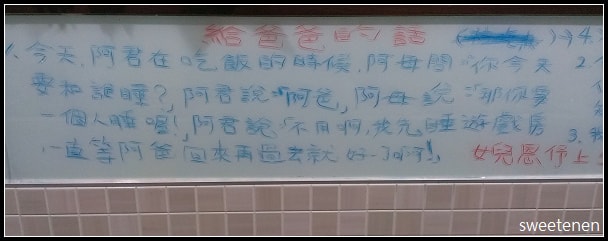 給爸爸的話
1. 今天,阿君在吃飯的時候,阿母問"你今天
要和誰睡?,阿君說"阿爸,阿母說"那你要
一個人睡喔!,阿君說"不用啊,我先睡遊戲房
,一直等阿爸回來再過去就好了啊!,
→4.
2.
3. 我
女兒恩伃上
sweetenen